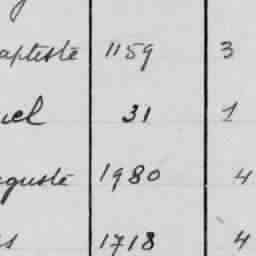 aptiste 1159 3
uel 31 1
guste 1980 4
1718 4